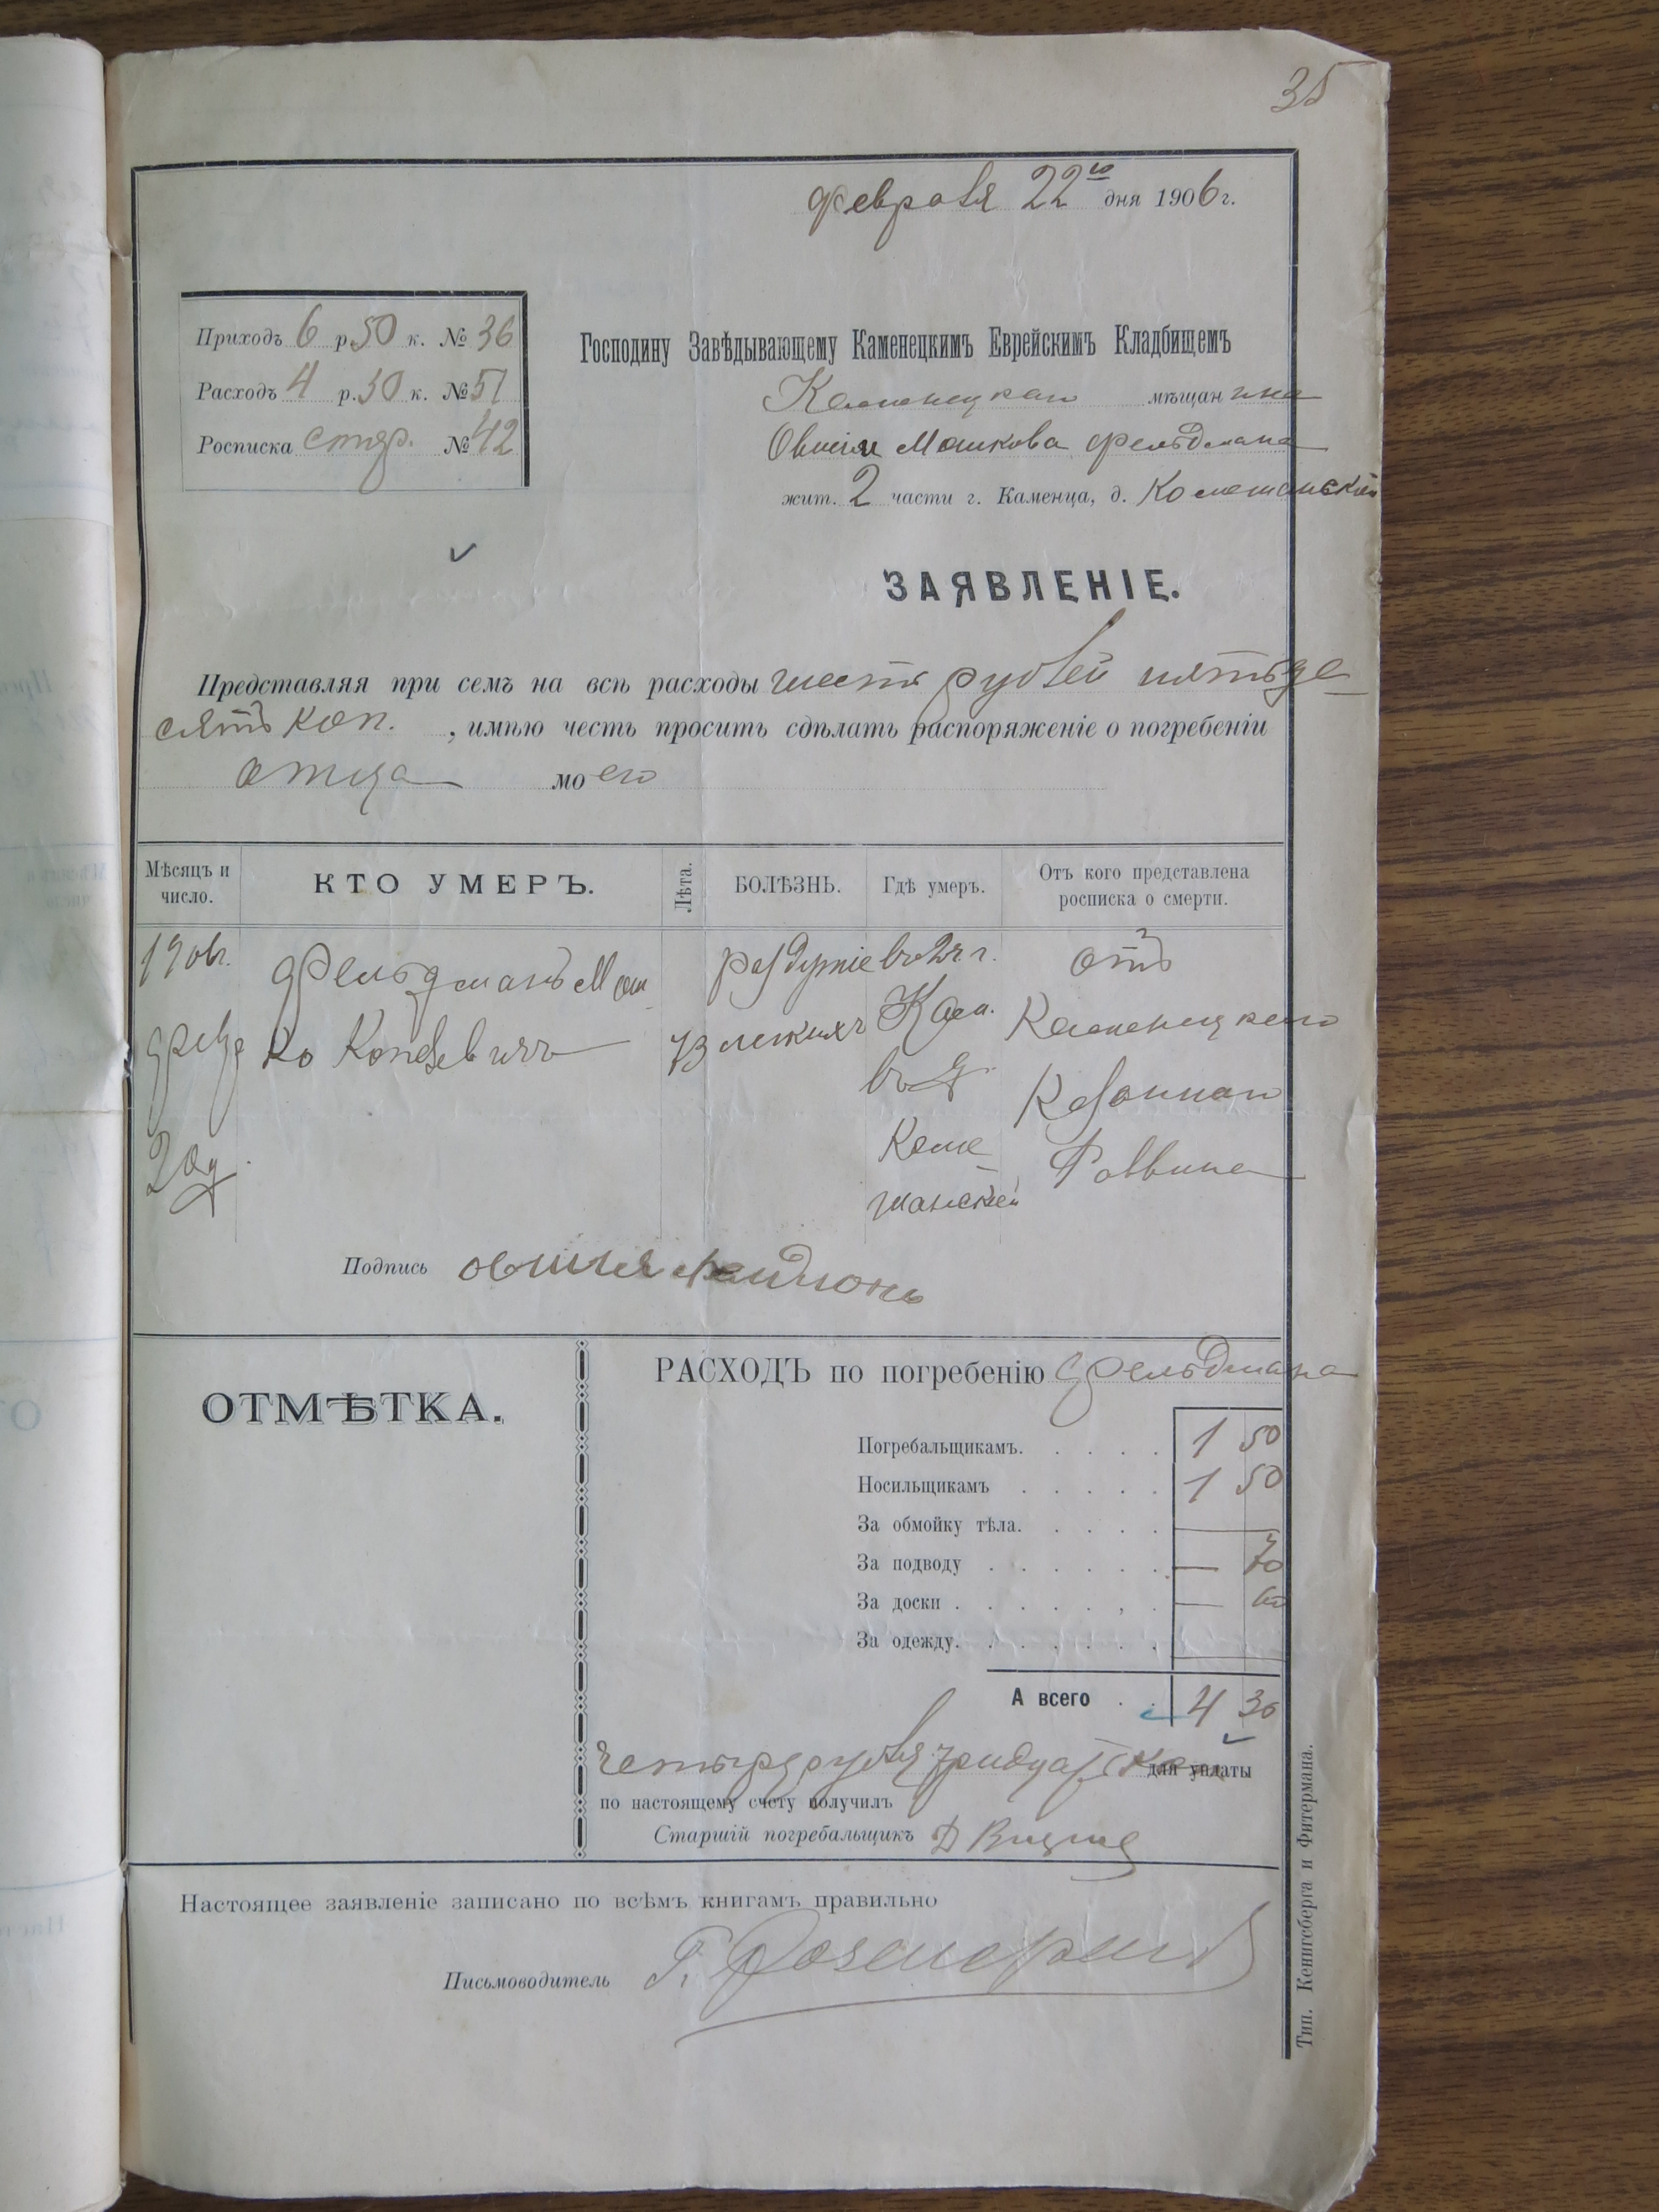 35
Февраля 22го дня 1906 г.
Приходъ 6 р. 50 к. № 36
Расходъ 4 р. 30 к. № 51
Росписка № 42
Господину Завѣдывающему Каменецкимъ Еврейскимъ Кладбищемъ
Каменецкаго мѣщанина
Овшія Мошкова Фельдмана
жит. 2 части г. Каменца, д.
ЗАЯВЛЕНІЕ.
Представляя при семъ на всѣ расходы шесть рублей пятьде
сятъ коп. , имѣю честь просить сдѣлать распоряженіе о погребеніи
отца моего
Мѣсяцъ и число.
КТО УМЕРЪ.
Лѣта.
БОЛѢЗНЬ.
Гдѣ умеръ.
Отъ кого представлена росписка о смерти.
1906г. Фельдманъ Мош раздутіе въ 2 ч. г. отъ
ко 73 легкихъ Кам. Каменецкаго
въ д. Казеннаго
Раввина
Подпись овшия
ОТМѢТКА.
РАСХОДЪ по погребенію Фельдмана
Погребальщикамъ. 1 50
Носильщикамъ 1 50
За обмойку тѣла. —
За подводу — 70
За доски — 60
За одежду.
А всего 4 30
четыре рубля тридцать для уплаты
по настоящему счету получилъ
Старшій погребальщикъ Д
Настоящее заявленіе записано по всѣмъ книгамъ правильно
Письмоводитель Г.
Тип. Кенигсберга и Фитермана.